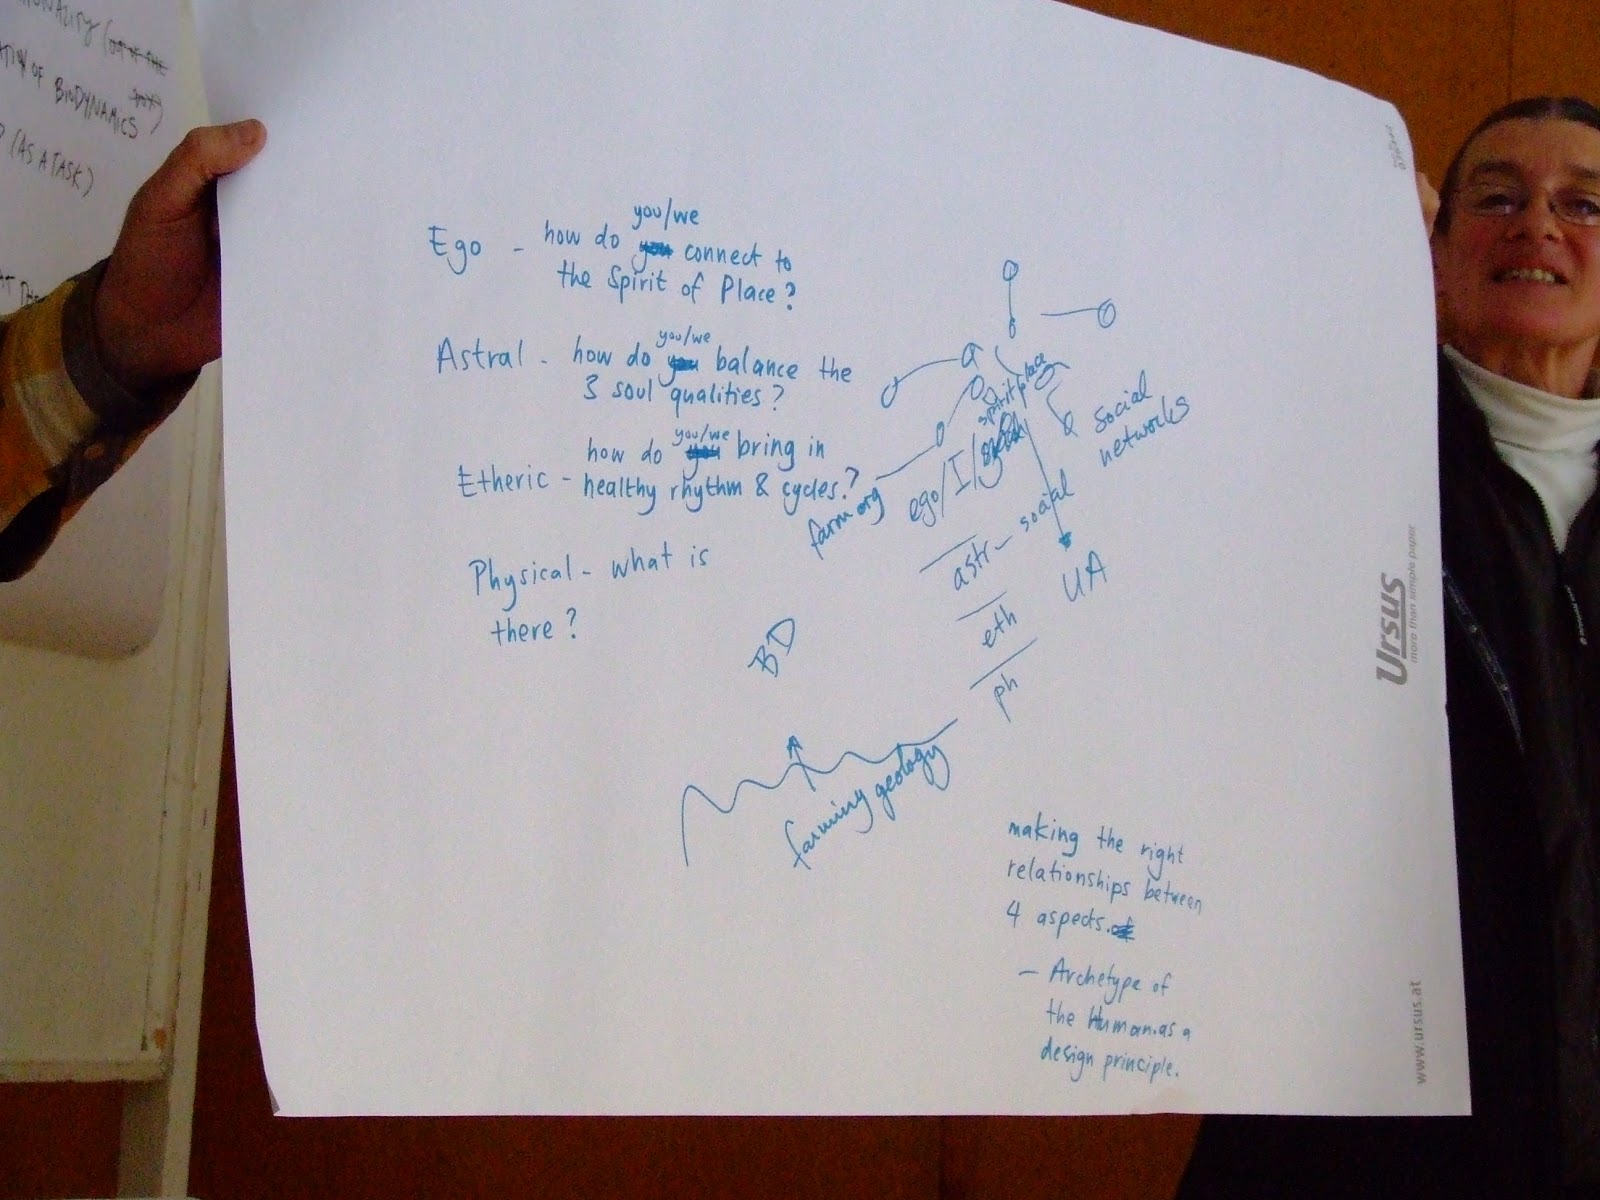 (OR OF THE
OF BIODYNAMICS
(AS A TASK)
you/we
Ego - how do you connect to
the Spirit of Place?
you/we
Astral - how do you balance the
3 soul qualities?
you/we
how do you bring in
Etheric - healthy rhythm & cycles.?
Physical - what is
there?
spirit place
social
networks
farm org
ego/I/
astr - social
UA
eth
ph
BD
farming geology
making the right
relationships between
4 aspects.
- Archetype of
the Human.as a
design principle.
Ursus
more than simple paper
www.ursus.at